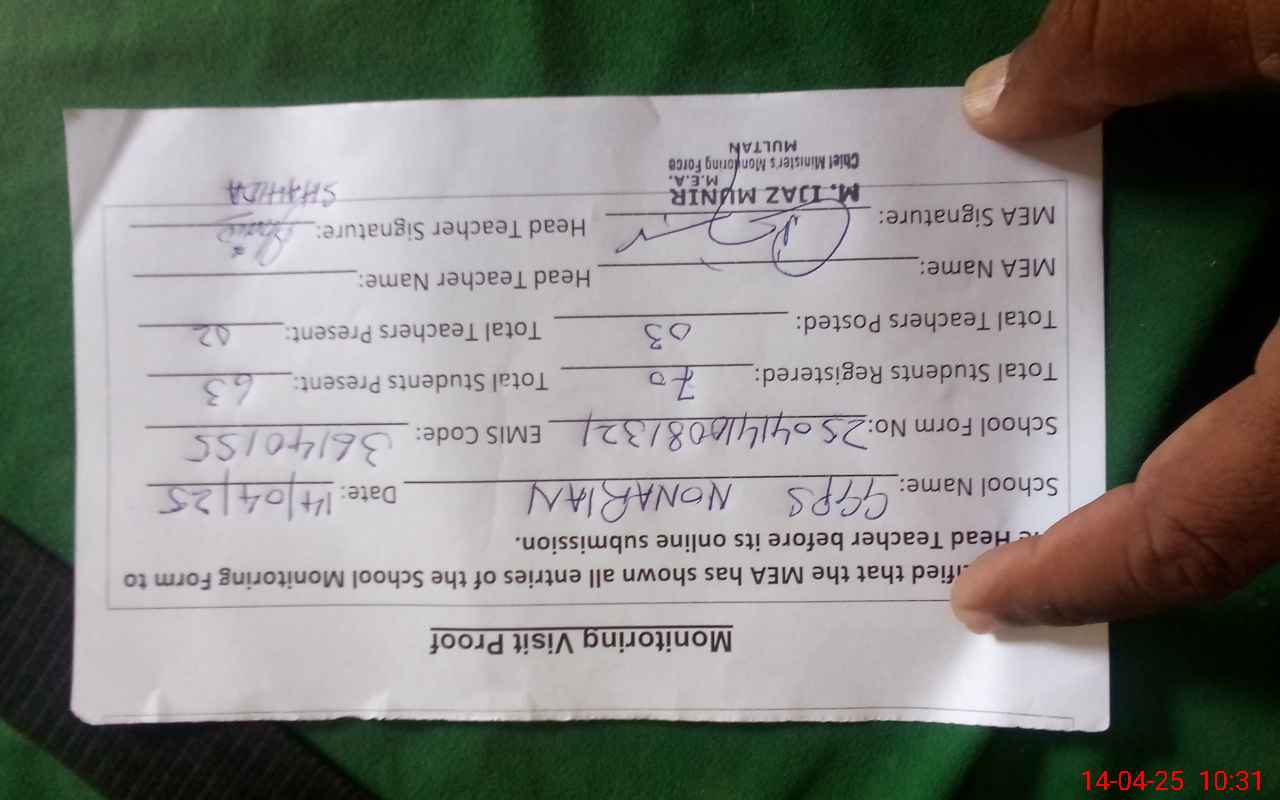 Monitoring Visit Proof
ified that the MEA has shown all entries of the School Monitoring Form to
Head Teacher before its online submission.
School Name: GGPS NONARIAN Date: 14/04/25
School Form No: EMIS Code: 36140155
Total Students Registered: 70 Total Students Present: 63
Total Teachers Posted: 03 Total Teachers Present: 02
MEA Name: Head Teacher Name:
MEA Signature: Head Teacher Signature:
M. IJAZ MUNIR SHAHIDA
M.E.A.
Chief Minister's Monitoring Force
MULTAN
14-04-25 10:31